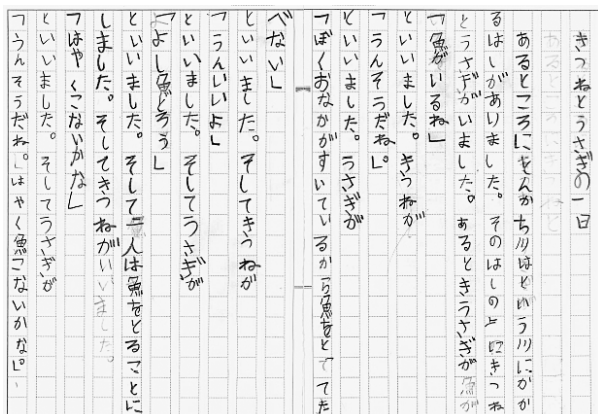 きつねとうさぎの一日
あるところに
あるところにどんかち川はどいう川にかか
るはしがありました。そのはしの上にきつね
とうさぎがいました。あるときうさぎが魚が
「魚がいるね」
といいました。きつねが
「うんそうだね。」
といいました。うさぎが
「ぼくおなかがすいているから魚をとってた
べない」
といいました。そしてきつねが
「うんいいよ」
といいました。そしてうさぎが
「よし魚どろう」
といいました。そして二人は魚をとることに
しました。そしてきつねがいいました。
「はやくこないかな」
といいました。そしてうさぎが
「うんそうだね。」はやく魚こないかな。」